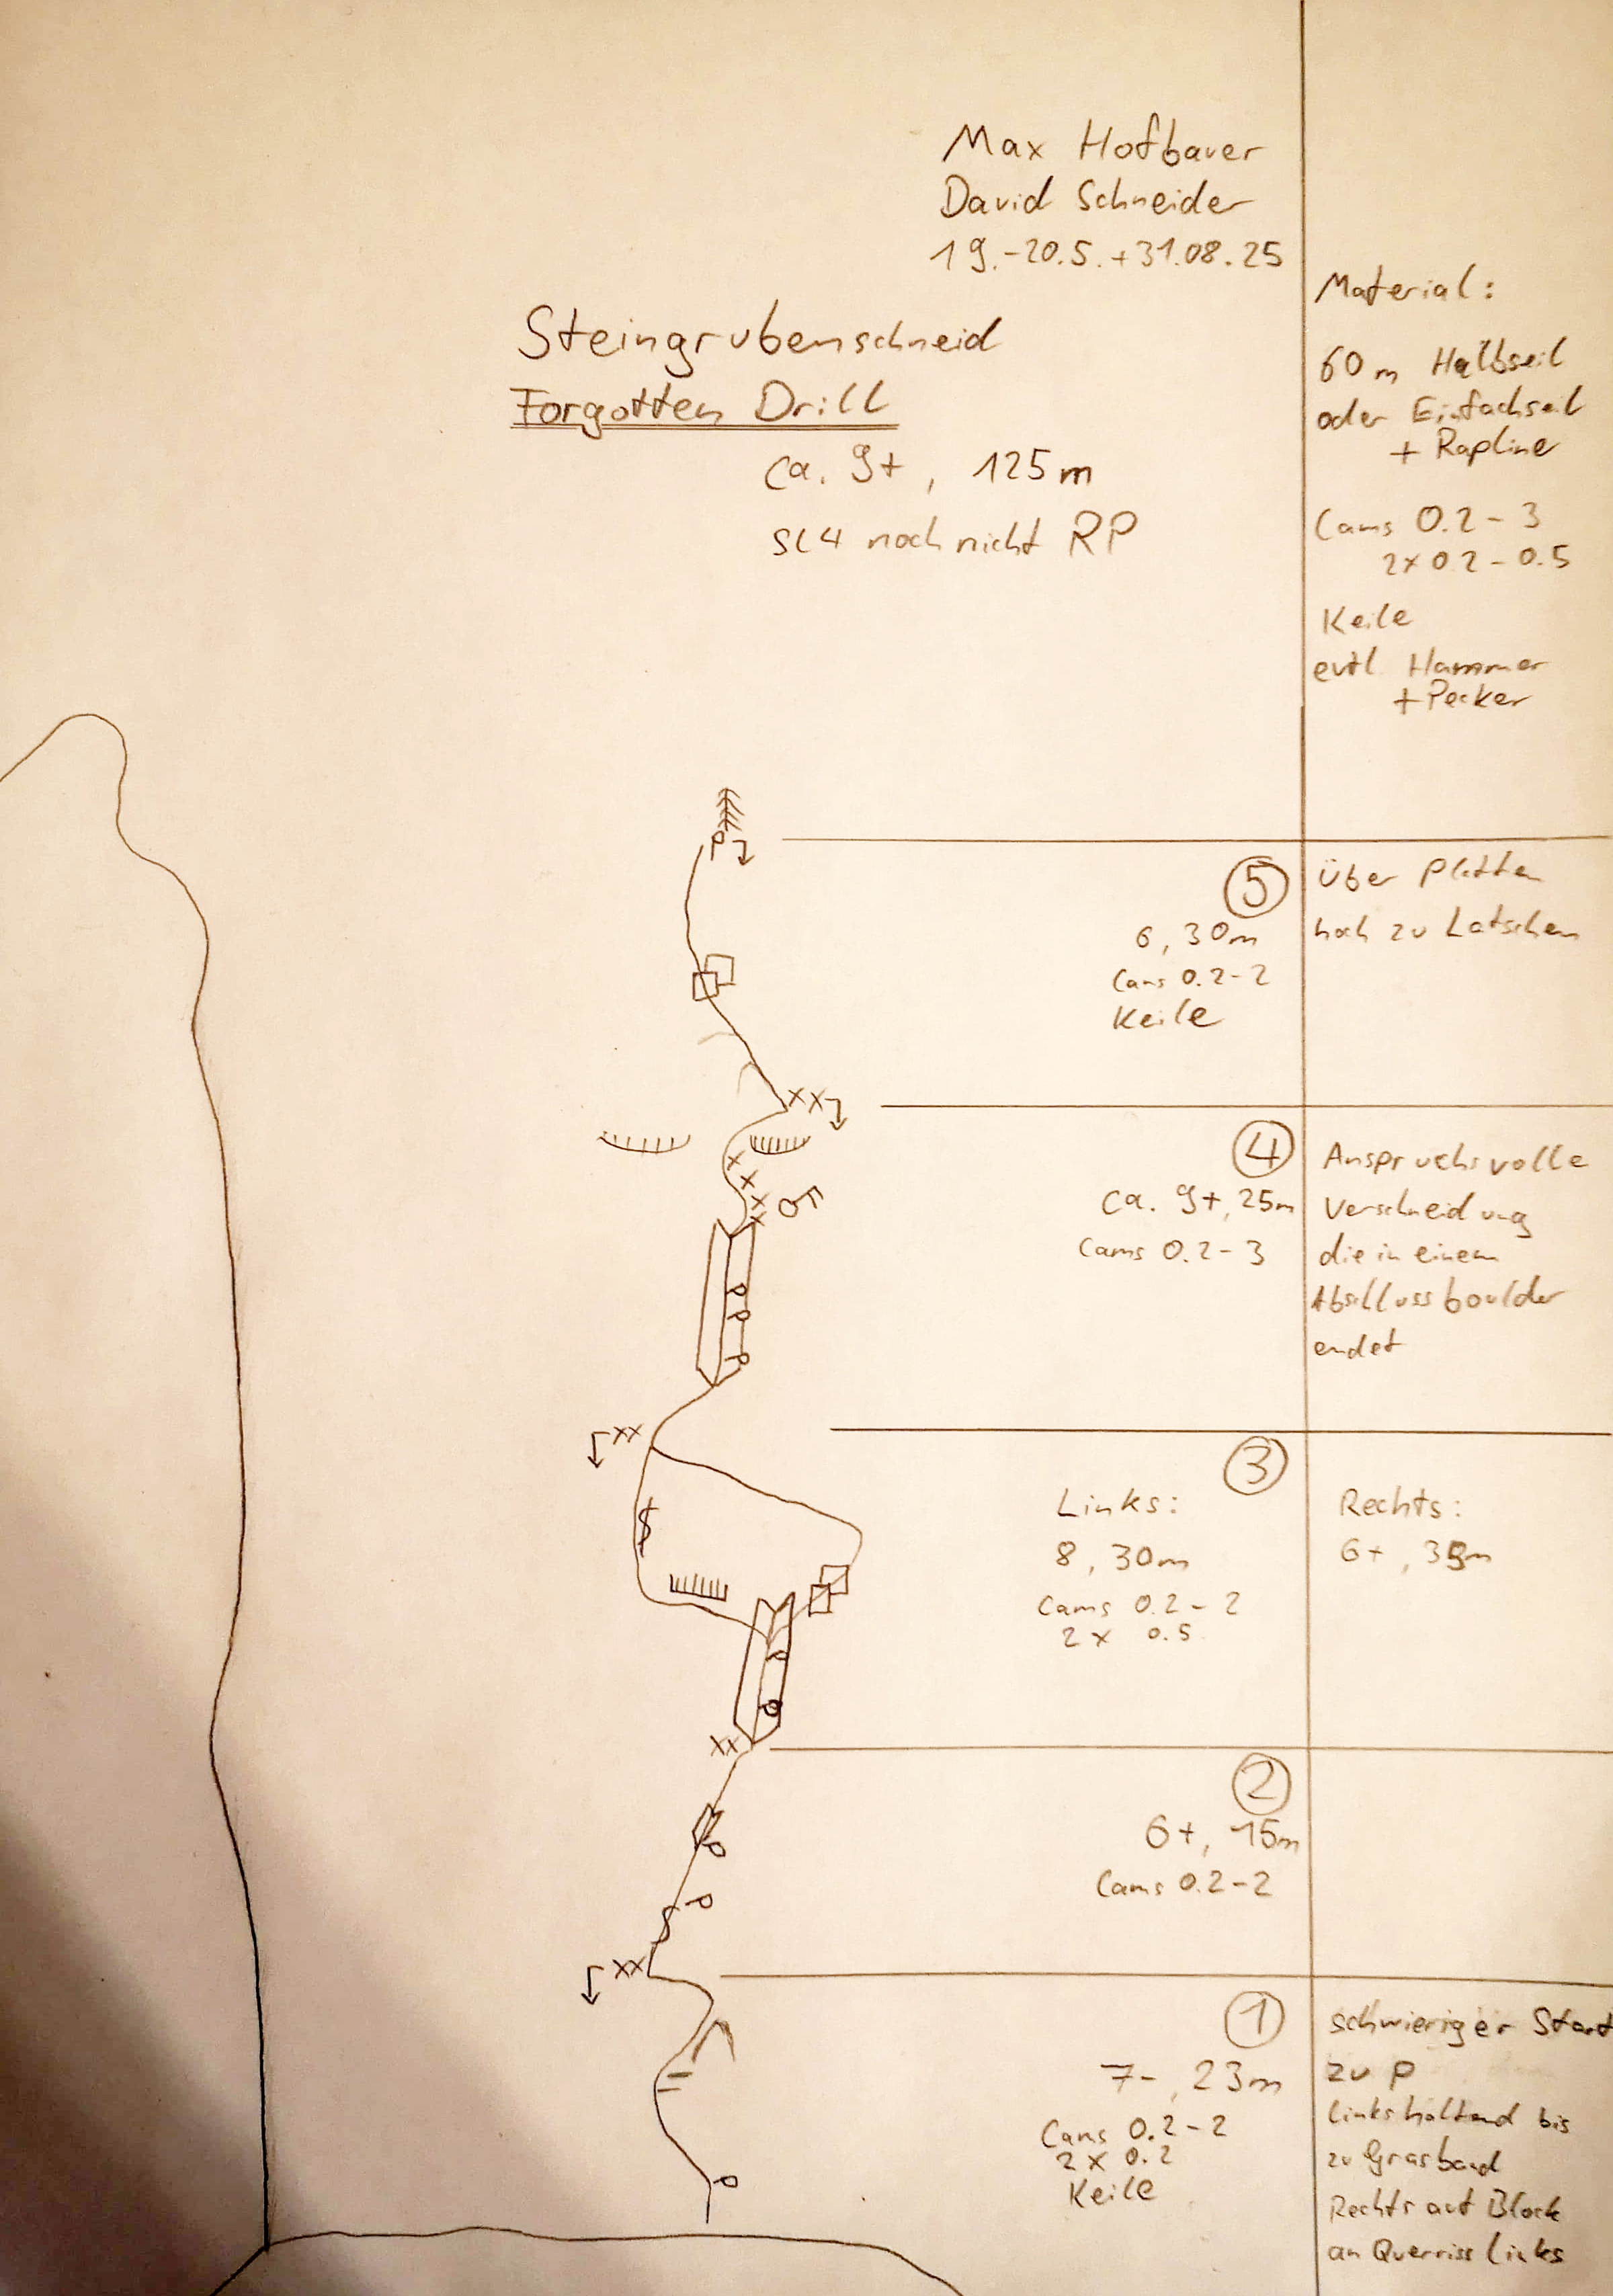 Max Hofbauer
David Schneider
19.-20.5.+31.08.25
Steingrubenschneid
Forgotten Drill
ca. 9+, 125m
SL4 noch nicht RP
Material:
60m Halbseil
oder Einfachseil
+ Rapline
Cams 0.2-3
2x0.2-0.5
Keile
evtl. Hammer
+Pecker
5
6, 30m
Cams 0.2-2
Keile
Über Platten
hoch zu Latschen
4
ca. 9+, 25m
Cams 0.2-3
Anspruchsvolle
Verschneidung
die in einem
Abschlussboulder
endet
3
Links:
8, 30m
Cams 0.2-2
2x 0.5
Rechts:
6+,
2
6+, 15m
Cams 0.2-2
1
7-, 23m
Cams 0.2-2
2x 0.2
Keile
schwieriger Start
zu P
linkshaltend bis
zu Grasband
Rechts auf Block
an Querriss links